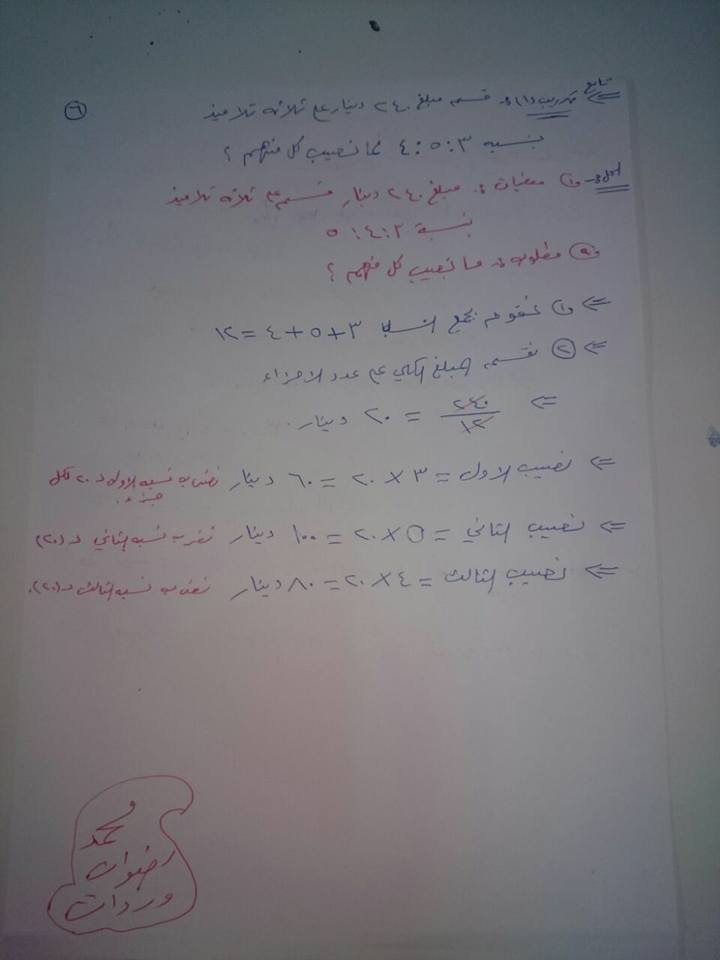 ٦
تابع
⇐ تدريب (١) : قسم مبلغ ٢٤٠ دينار على ثلاثة تلاميذ
بنسبه ٣ : ٥ : ٤ فما نصيب كل منهم ؟
الحل :- ١) معطيات : مبلغ ٢٤٠ دينار قسم على ثلاثة تلاميذ
بنسبة ٣ : ٤ : ٥
٢) مطلوب : ما نصيب كل منهم ؟
⇐ ١) نقوم بجمع النسب ٣ + ٥ + ٤ = ١٢
⇐ ٢) نقسم المبلغ الكلي على عدد الاجزاء
⇐ ٢٤٠ / ١٢ = ٢٠ دينار .
⇐ نصيب الاول = ٣ × ٢٠ = ٦٠ دينار نضرب نسبه الاول د ٢٠ لكل
جزء .
⇐ نصيب الثاني = ٥ × ٢٠ = ١٠٠ دينار نضرب نسبه الثاني د (٢٠)
⇐ نصيب الثالث = ٤ × ٢٠ = ٨٠ دينار نضرب نسبه الثالث د (٢٠) .
محمد
رضوان
وردات